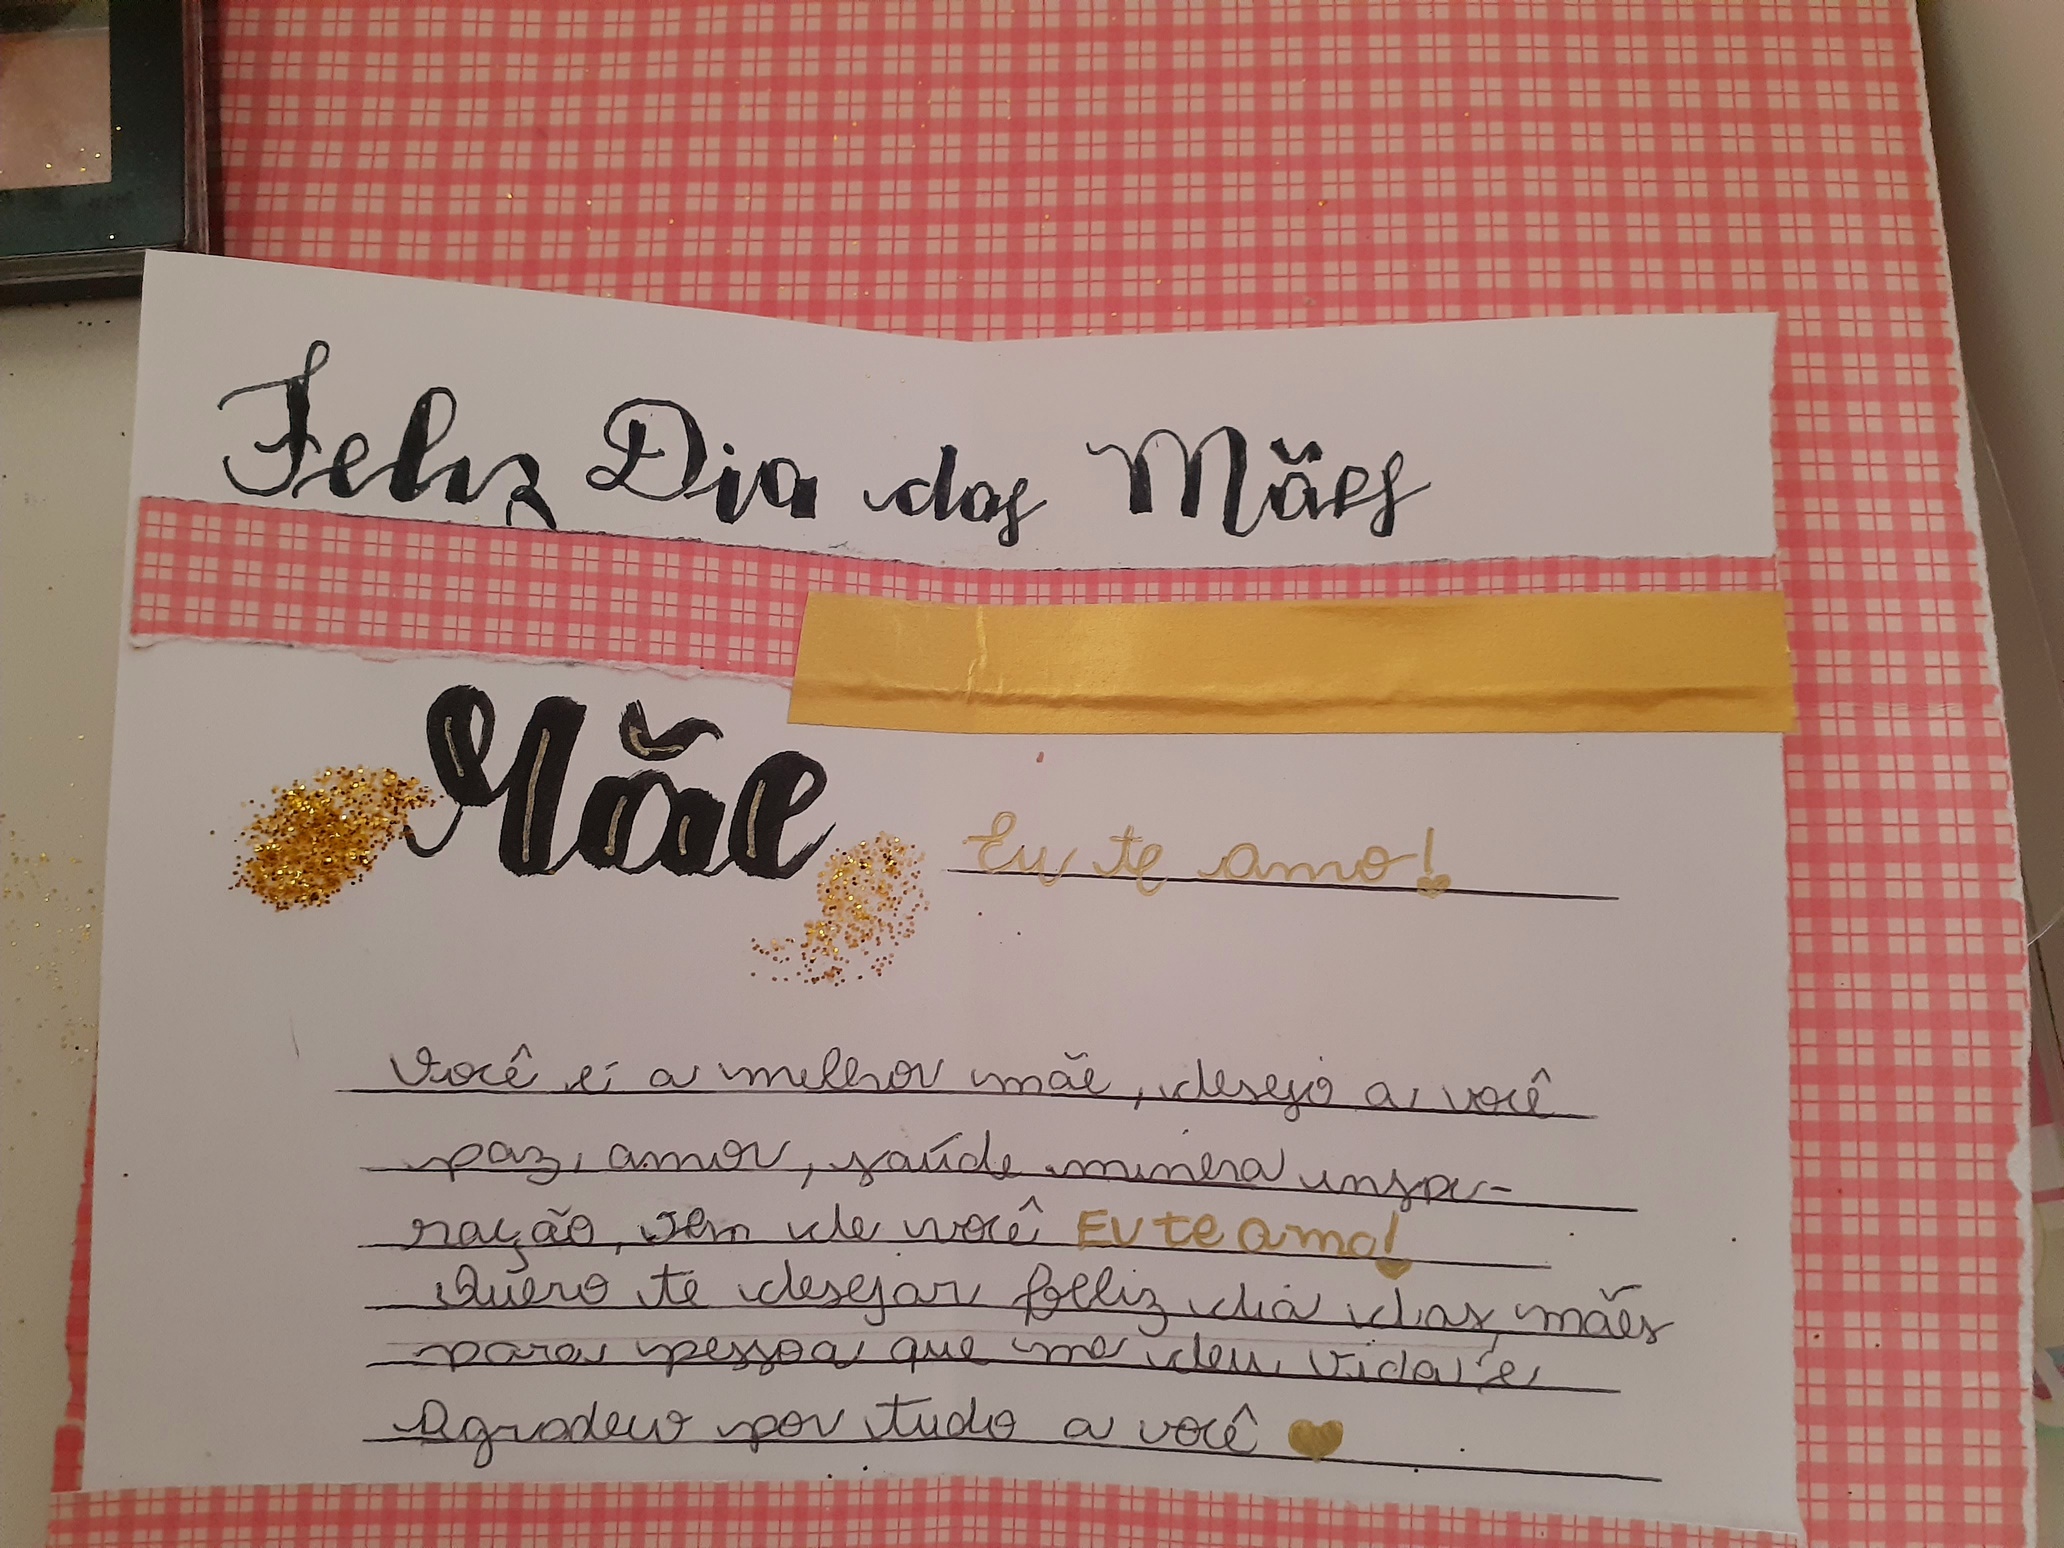 Feliz Dia das Mães
Mãe
Eu te amo!
Você é a melhor mãe, desejo a você
paz, amor, saúde minha inspi-
ração, vem de você Eu te amo!
Quero te desejar feliz dia das mães
para pessoa que me deu vida e
Agradeço por tudo a você